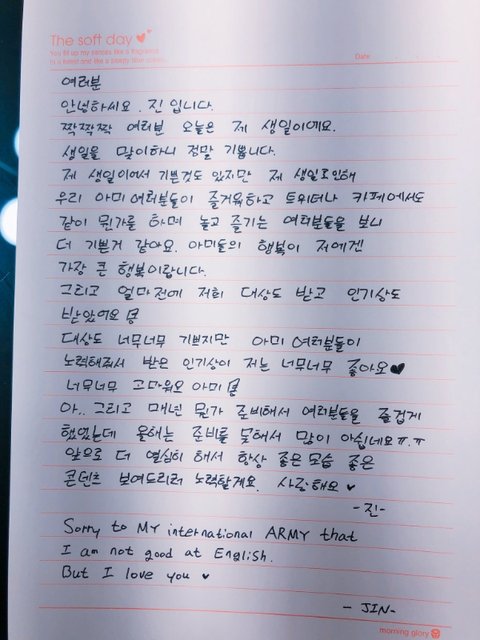 The soft day
You fill up my senses like a fragrance
in a forest and like a
Date
여러분
안녕하세요. 진 입니다.
짝짝짝 여러분 오늘은 제 생일이에요.
생일을 맞이하니 정말 기쁩니다.
제 생일이어서 기쁜것도 있지만 제 생일로인해
우리 아미 여러분들이 즐거워하고 트위터나 카페에서도
같이 뭔가를 하며 놀고 즐기는 여러분들을 보니
더 기쁜거 같아요. 아미들의 행복이 저에겐
가장 큰 행복이랍니다.
그리고 얼마전에 저희 대상도 받고 인기상도
받았어요
대상도 너무너무 기쁘지만 아미 여러분들이
노력해줘서 받은 인기상이 저는 너무너무 좋아요♥
너무너무 고마워요 아미
아.. 그리고 매년 뭔가 준비해서 여러분들을 즐겁게
했었는데 올해는 준비를 못해서 많이 아쉽네요ㅠ.ㅠ
앞으로 더 열심히 해서 항상 좋은모습 좋은
콘텐츠 보여드리려 노력할게요. 사랑해요 ♥
-진-
Sorry to MY international ARMY that
I am not good at English.
But I love you ♥
- JIN-
morning glory